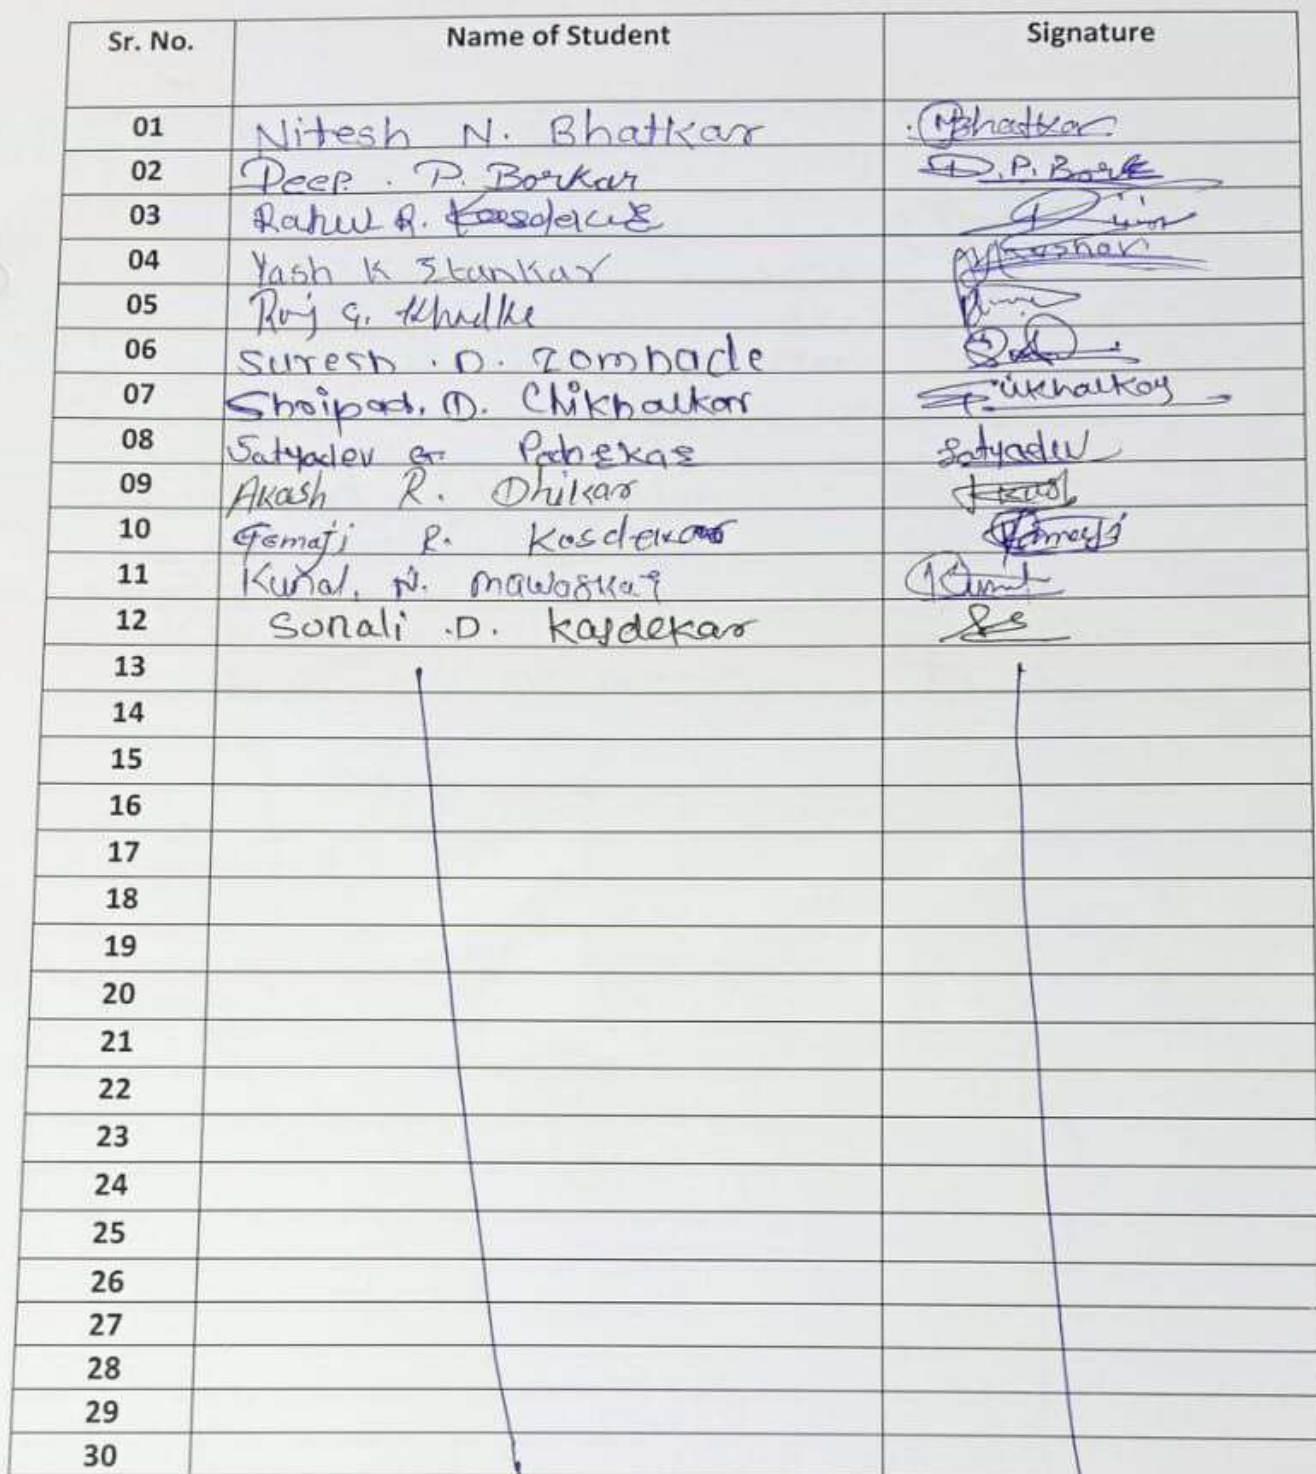 Sr. No. Name of Student Signature
01 Nitesh N. Bhatkar Bhatkar
02 Deep. P. Borkar D. P. Bork
03 Rahul R.
04 Yash K
05 Raj G. Khadke
06 Suresh . D. Zomnade
07 Shripad. D. Chikhalkar
08 Satyadev G. Satyadev
09 Akash R. Dhikar
10 R. Kasdekar
11 Kunal. N. Mawaskar
12 Sonali .D. Kasdekar
13
14
15
16
17
18
19
20
21
22
23
24
25
26
27
28
29
30